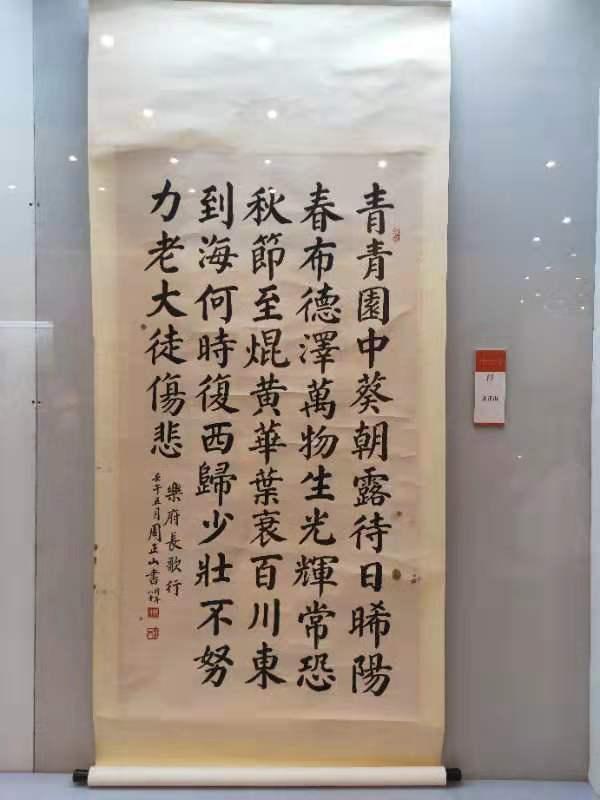 青青園中葵朝露待日晞陽
春布德澤萬物生光輝常恐
秋節至焜黄華葉衰百川東
到海何時復西歸少壯不努
力老大徒傷悲
樂府長歌行
壬午五月周正山書